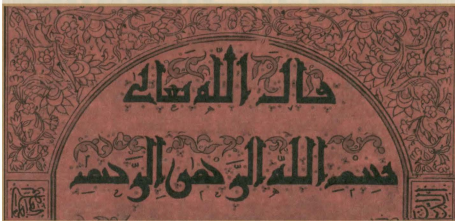 قال الله تعالى
بسم الله الرحمن الرحيم